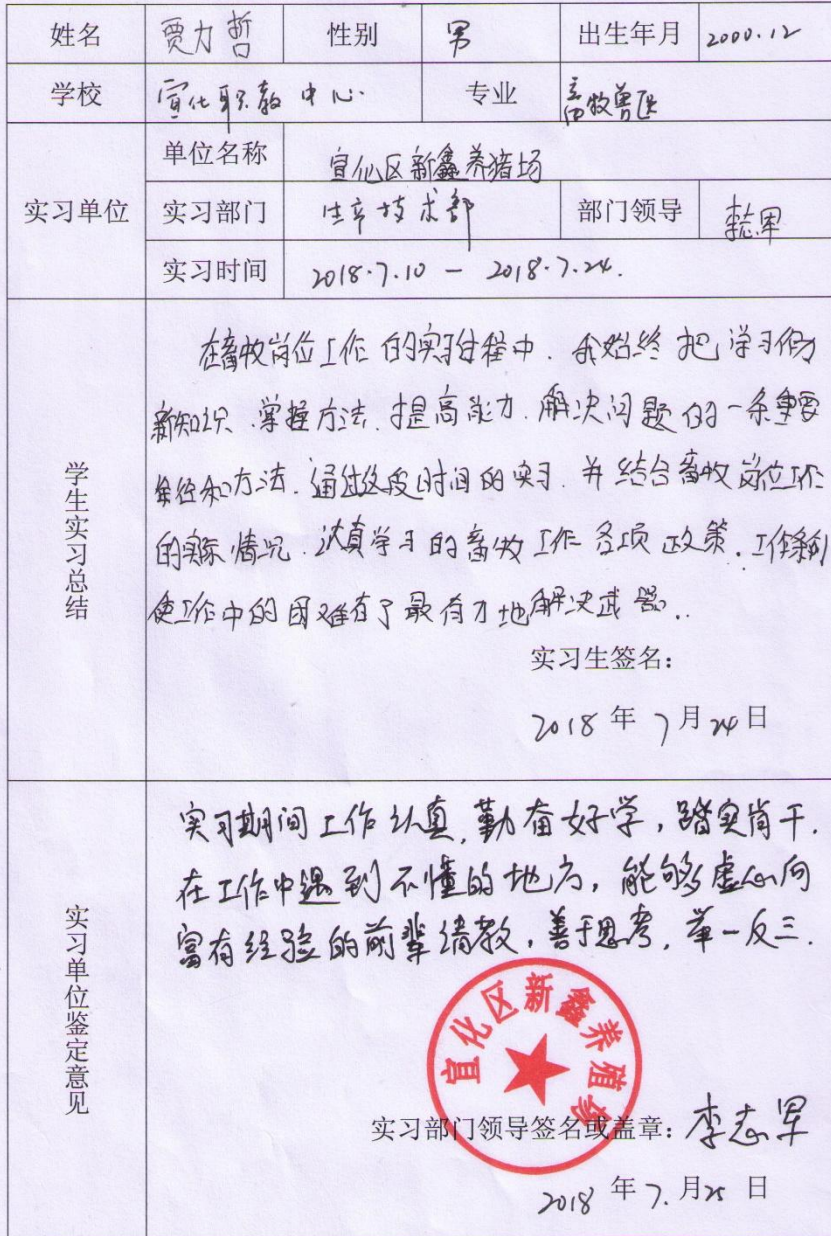 姓名 贾力哲 性别 男 出生年月 2000.12
学校 宣化职教中心 专业 畜牧兽医
实习单位 单位名称 宣化区新鑫养猪场
实习部门 生产技术部 部门领导 李志军
实习时间 2018.7.10 — 2018.7.24.
学生实习总结
在畜牧岗位工作的实习过程中.我始终把学习作为
新知识.掌握方法.提高能力.解决问题的一条重要
途径和方法.通过这段时间的实习.并结合畜牧岗位工作
的实际情况.认真学习的畜牧工作各项政策.工作条例
使工作中的困难有了最有力地解决武器..
实习生签名:
2018 年 7 月 24 日
实习单位鉴定意见
实习期间工作认真,勤奋好学,踏实肯干.
在工作中遇到不懂的地方,能够虚心向
富有经验的前辈请教,善于思考,举一反三.
宣化区新鑫养殖场
实习部门领导签名或盖章:李志军
2018 年 7. 月 25 日